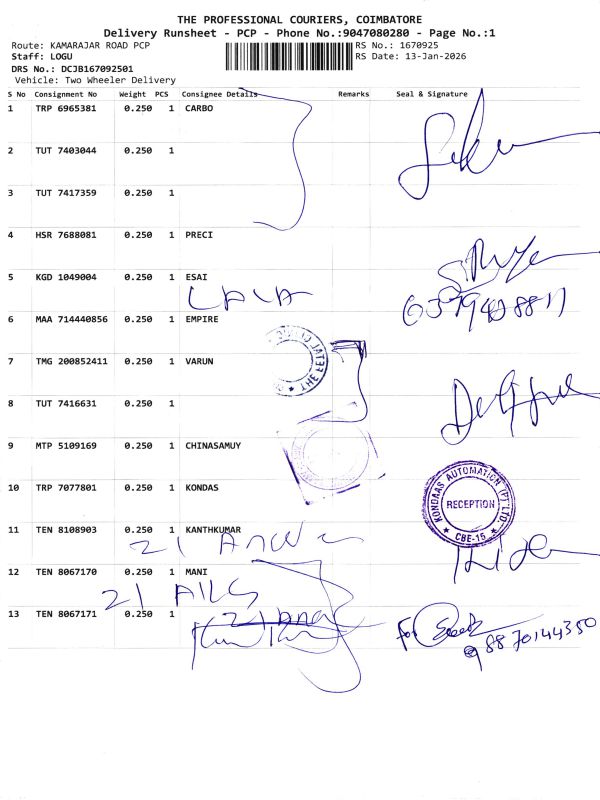 THE PROFESSIONAL COURIERS, COIMBATORE
Delivery Runsheet - PCP - Phone No.:9047080280 - Page No.:1
Route: KAMARAJAR ROAD PCP RS No.: 1670925
Staff: LOGU RS Date: 13-Jan-2026
DRS No.: DCJB167092501
Vehicle: Two Wheeler Delivery
S No Consignment No Weight PCS Consignee Details Remarks Seal & Signature
1 TRP 6965381 0.250 1 CARBO
2 TUT 7403044 0.250 1
3 TUT 7417359 0.250 1
4 HSR 7688081 0.250 1 PRECI
5 KGD 1049004 0.250 1 ESAI
6 MAA 714440856 0.250 1 EMPIRE
7 TMG 200852411 0.250 1 VARUN
8 TUT 7416631 0.250 1
9 MTP 5109169 0.250 1 CHINASAMUY
10 TRP 7077801 0.250 1 KONDAS
KONDAAS AUTOMATION (P) LTD.
RECEPTION
★ CBE-15 ★
11 TEN 8108903 0.250 1 KANTHKUMAR
21
12 TEN 8067170 0.250 1 MANI
21
13 TEN 8067171 0.250 1
for
98870144350